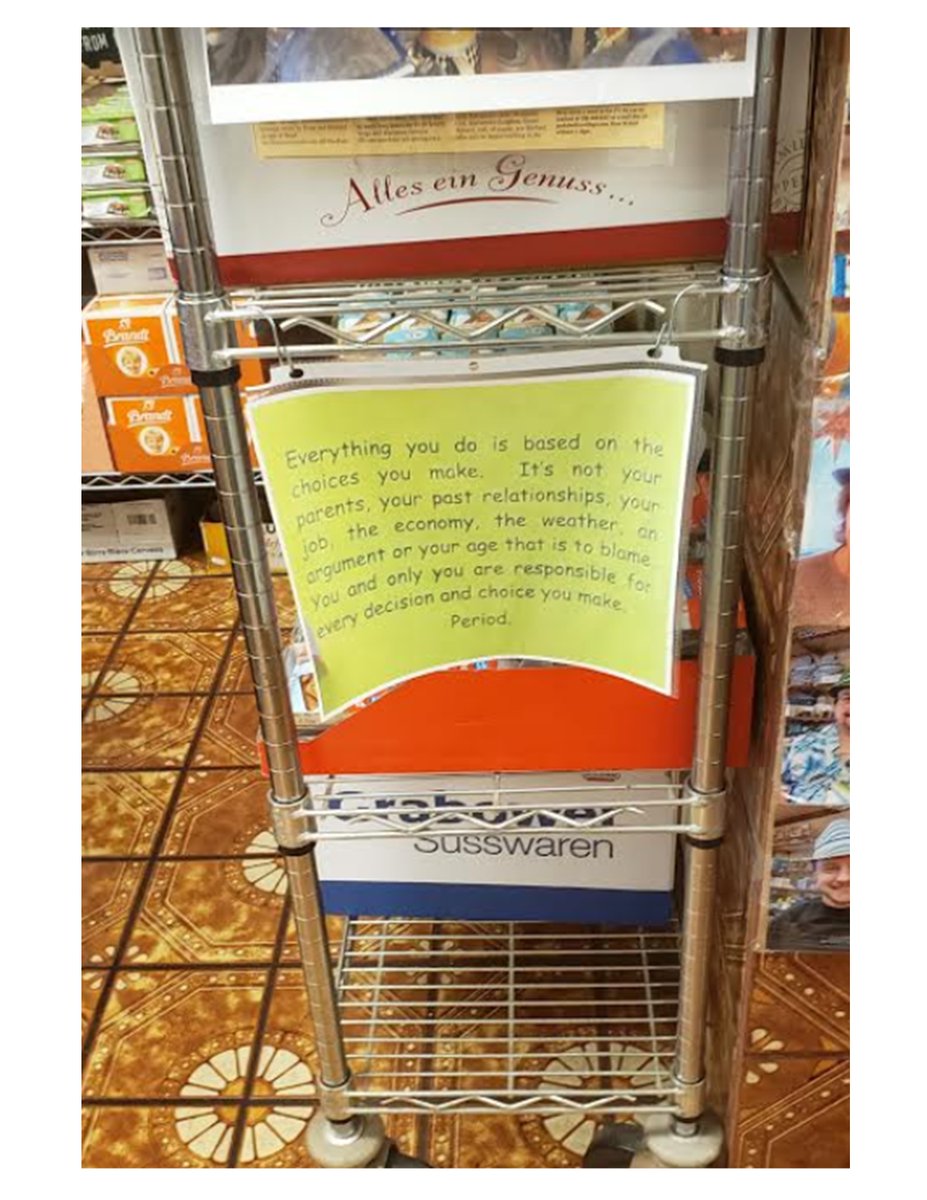 FROM
Alles ein Genuss...
Brandt
Brandt
Brandt
Brandt
Everything you do is based on the
choices you make. It's not your
parents, your past relationships, your
job, the economy, the weather, an
argument or your age that is to blame
You and only you are responsible for
every decision and choice you make.
Period.
Grabower
Süsswaren